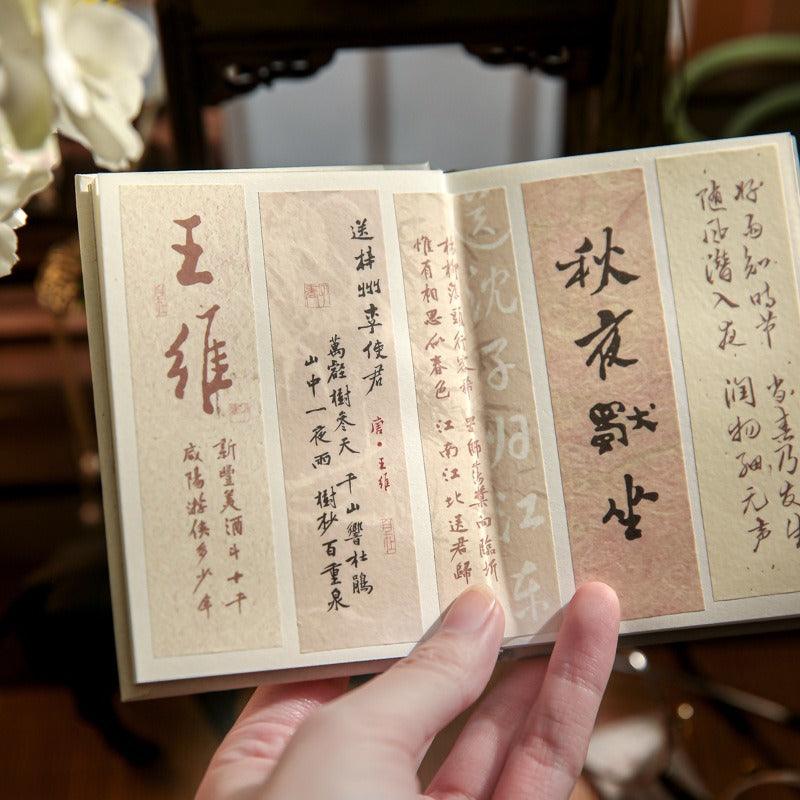 王維
新豐美酒斗十千
咸陽游俠多少年
送梓州李使君
唐·王維
萬壑樹參天 千山響杜鵑
山中一夜雨 樹杪百重泉
送沈子归江东
楊柳渡頭行客稀 罟師蕩槳向臨圻
惟有相思似春色 江南江北送君歸
秋夜獨坐
好雨知时节 当春乃发生
随风潜入夜 润物细无声